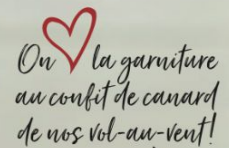 On ❤ la garniture
au confit de canard
de nos vol-au-vent!